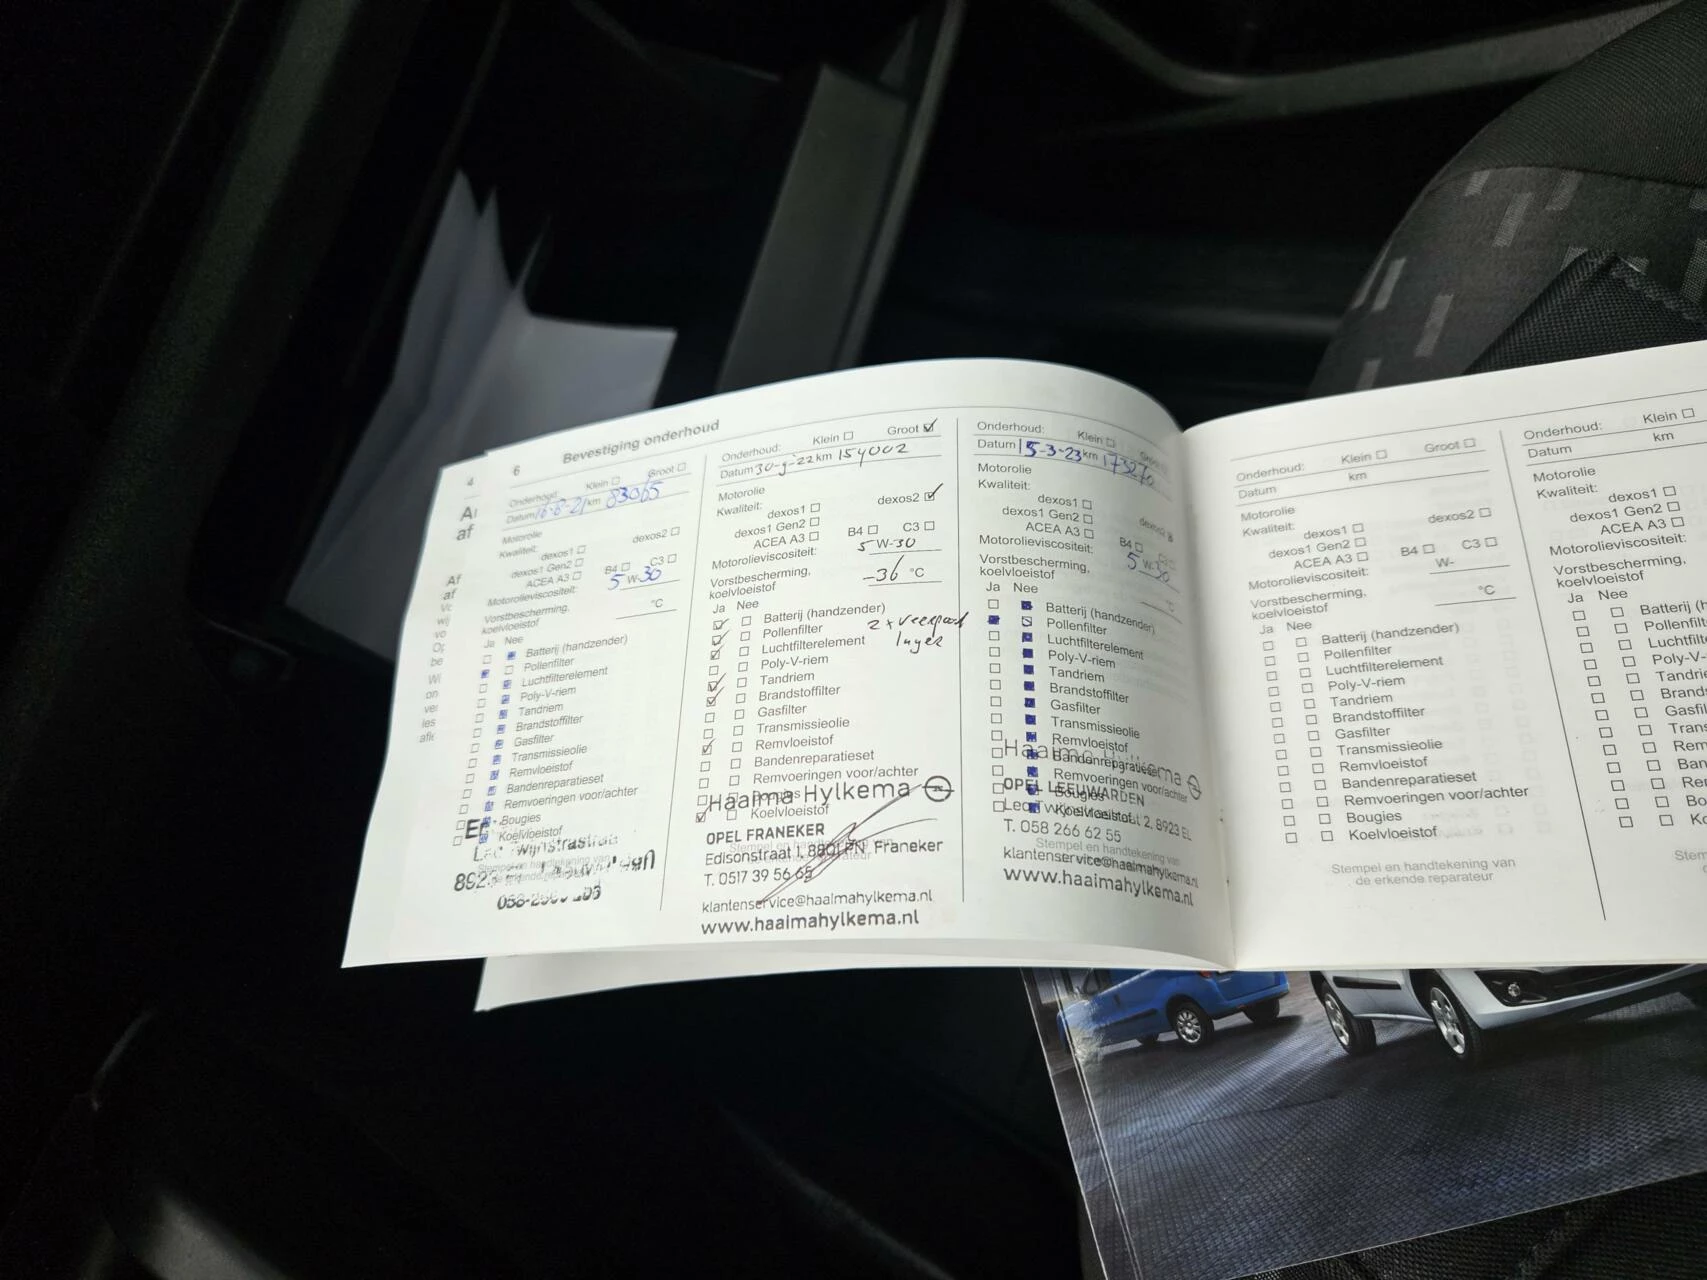 4
6 Bevestiging onderhoud
Af
af
Af
af
be
Wi
on
ver
Onderhoud: Klein Groot
Datum 16-8-21 km 83065
Motorolie
Kwaliteit: dexos1 dexos2
dexos1 Gen2
ACEA A3 B4 C3
Motorolieviscositeit: 5 W-30
Vorstbescherming,
koelvloeistof °C
Ja Nee
Batterij (handzender)
Pollenfilter
Luchtfilterelement
Poly-V-riem
Tandriem
Brandstoffilter
Gasfilter
Transmissieolie
Remvloeistof
Bandenreparatieset
Remvoeringen voor/achter
Bougies
Koelvloeistof
Stempel en handtekening van
Onderhoud: Klein Groot
Datum 30-9-22 km 154002
Motorolie
Kwaliteit: dexos1 dexos2
dexos1 Gen2
ACEA A3 B4 C3
Motorolieviscositeit: 5 W-30
Vorstbescherming,
koelvloeistof -36 °C
Ja Nee
Batterij (handzender)
Pollenfilter 2x veerpoot
Luchtfilterelement lager
Poly-V-riem
Tandriem
Brandstoffilter
Gasfilter
Transmissieolie
Remvloeistof
Bandenreparatieset
Remvoeringen voor/achter
Bougies
Koelvloeistof
Haaima Hylkema
OPEL FRANEKER
Edisonstraat 1, Franeker
T. 0517 39 56 65
klantenservice@haaimahylkema.nl
www.haaimahylkema.nl
Onderhoud: Klein Groot
Datum 15-3-23 km 173270
Motorolie
Kwaliteit: dexos1 dexos2
dexos1 Gen2
ACEA A3 B4 C3
Motorolieviscositeit: 5 W-30
Vorstbescherming,
koelvloeistof °C
Ja Nee
Batterij (handzender)
Pollenfilter
Luchtfilterelement
Poly-V-riem
Tandriem
Brandstoffilter
Gasfilter
Transmissieolie
Remvloeistof
Bandenreparatieset
Remvoeringen voor/achter
Bougies
Koelvloeistof
Haaima Hylkema
OPEL LEEUWARDEN
2, 8923 EL
T. 058 266 62 55
Stempel en handtekening van
klantenservice@haaimahylkema.nl
www.haaimahylkema.nl
Onderhoud: Klein Groot
Datum km
Motorolie
Kwaliteit: dexos1 dexos2
dexos1 Gen2
ACEA A3 B4 C3
Motorolieviscositeit: W-
Vorstbescherming,
koelvloeistof °C
Ja Nee
Batterij (handzender)
Pollenfilter
Luchtfilterelement
Poly-V-riem
Tandriem
Brandstoffilter
Gasfilter
Transmissieolie
Remvloeistof
Bandenreparatieset
Remvoeringen voor/achter
Bougies
Koelvloeistof
Stempel en handtekening van
de erkende reparateur
Onderhoud: Klein
Datum km
Motorolie
Kwaliteit: dexos1
dexos1 Gen2
ACEA A3
Motorolieviscositeit:
Vorstbescherming,
koelvloeistof
Ja Nee
Batterij (h
Pollenfilt
Luchtfilt
Poly-V-
Tandrie
Brand
Gasfil
Trans
Rem
Ban
Re
Bo
Ko